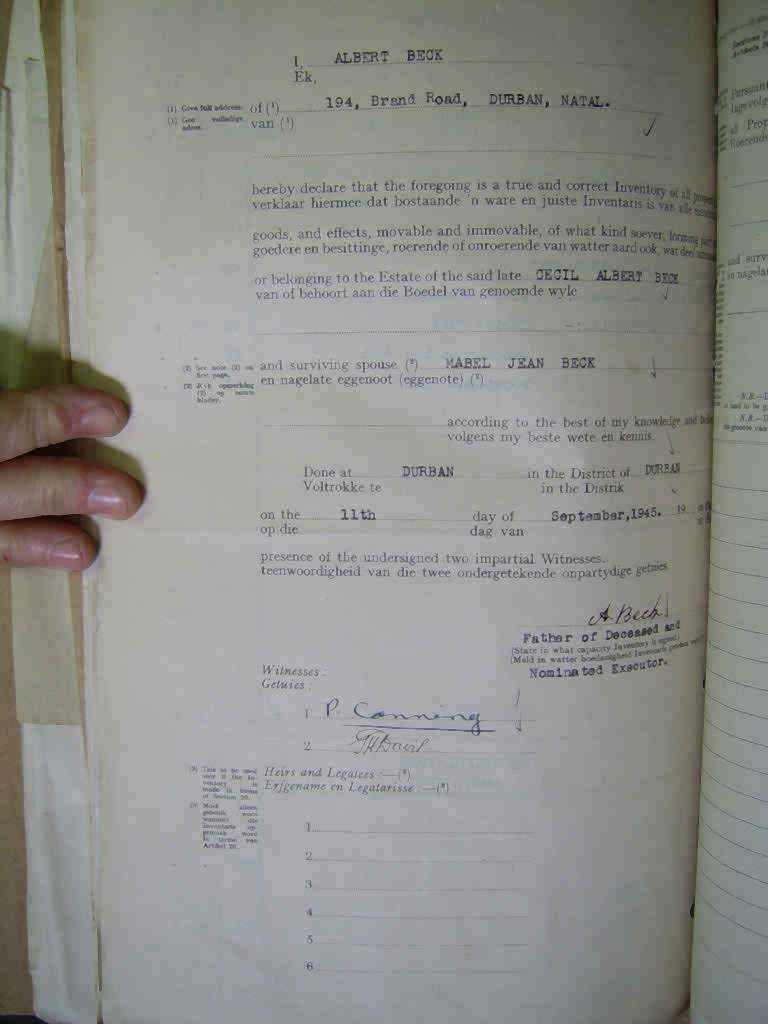 I, ALBERT BECK
Ek,
(1) Give full address. of (¹) 194, Brand Road, DURBAN, NATAL.
(1) Gee volledige adres. van (¹)
hereby declare that the foregoing is a true and correct Inventory of all
verklaar hiermee dat bostaande 'n ware en juiste Inventaris is van alle
goods, and effects, movable and immovable, of what kind soever, forming part
goedere en besittinge, roerende of onroerende van watter aard ook, wat deel
or belonging to the Estate of the said late CECIL ALBERT BECK
van of behoort aan die Boedel van genoemde wyle
(2) See note (2) on first page. and surviving spouse (²) MABEL JEAN BECK
(2) Kyk opmerking (2) op eerste bladsy. en nagelate eggenoot (eggenote) (²)
according to the best of my knowledge and
volgens my beste wete en kennis.
Done at DURBAN in the District of DURBAN
Voltrokke te in the Distrik
on the 11th day of September, 1945. 19
op die dag van
presence of the undersigned two impartial Witnesses.
teenwoordigheid van die twee ondergetekende onpartydige getuies.
A. Beck
Father of Deceased and
(State in what capacity Inventory is signed)
(Meld in watter hoedanigheid Inventaris
Nominated Executor.
Witnesses:
Getuies:
1 P. Canning
2
(3) This to be used only if the Inventory is made in terms of Section 20. Heirs and Legatees :—(³)
Erfgename en Legatarisse :—(³)
(3) Moet alleen gebruik word wanneer die Inventaris opgemaak word in terme van Artikel 20.
1
2
3
4
5
6